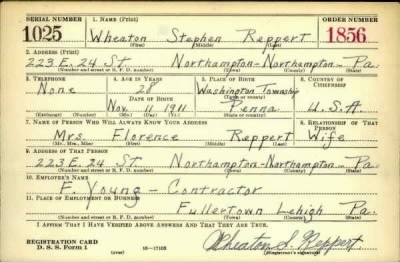 SERIAL NUMBER 1. NAME (Print) ORDER NUMBER
1025 Wheaton Stephen Reppert 1856
(First) (Middle) (Last)
2. ADDRESS (Print)
223 E. 24 St. Northampton-Northampton-Pa.
(Number and street or R. F. D. number) (Town) (County) (State)
3. TELEPHONE 4. AGE IN YEARS 5. PLACE OF BIRTH 6. COUNTRY OF CITIZENSHIP
None 28 Washington Township
DATE OF BIRTH (Town or county)
Nov 11 1911 Penna U.S.A
(Exchange) (Number) (Mo.) (Day) (Yr.) (State or country)
7. NAME OF PERSON WHO WILL ALWAYS KNOW YOUR ADDRESS 8. RELATIONSHIP OF THAT PERSON
Mrs. Florence Reppert Wife
(Mr., Mrs., Miss) (First) (Middle) (Last)
9. ADDRESS OF THAT PERSON
223 E. 24 St. Northampton-Northampton-Pa.
(Number and street or R. F. D. number) (Town) (County) (State)
10. EMPLOYER'S NAME
F. Young - Contractor
11. PLACE OF EMPLOYMENT OR BUSINESS
Fullertown Lehigh Pa.
(Number and street or R. F. D. number) (Town) (County) (State)
I AFFIRM THAT I HAVE VERIFIED ABOVE ANSWERS AND THAT THEY ARE TRUE.
REGISTRATION CARD
D. S. S. Form 1 (over) 16-17105 Wheaton S. Reppert
(Registrant's signature)